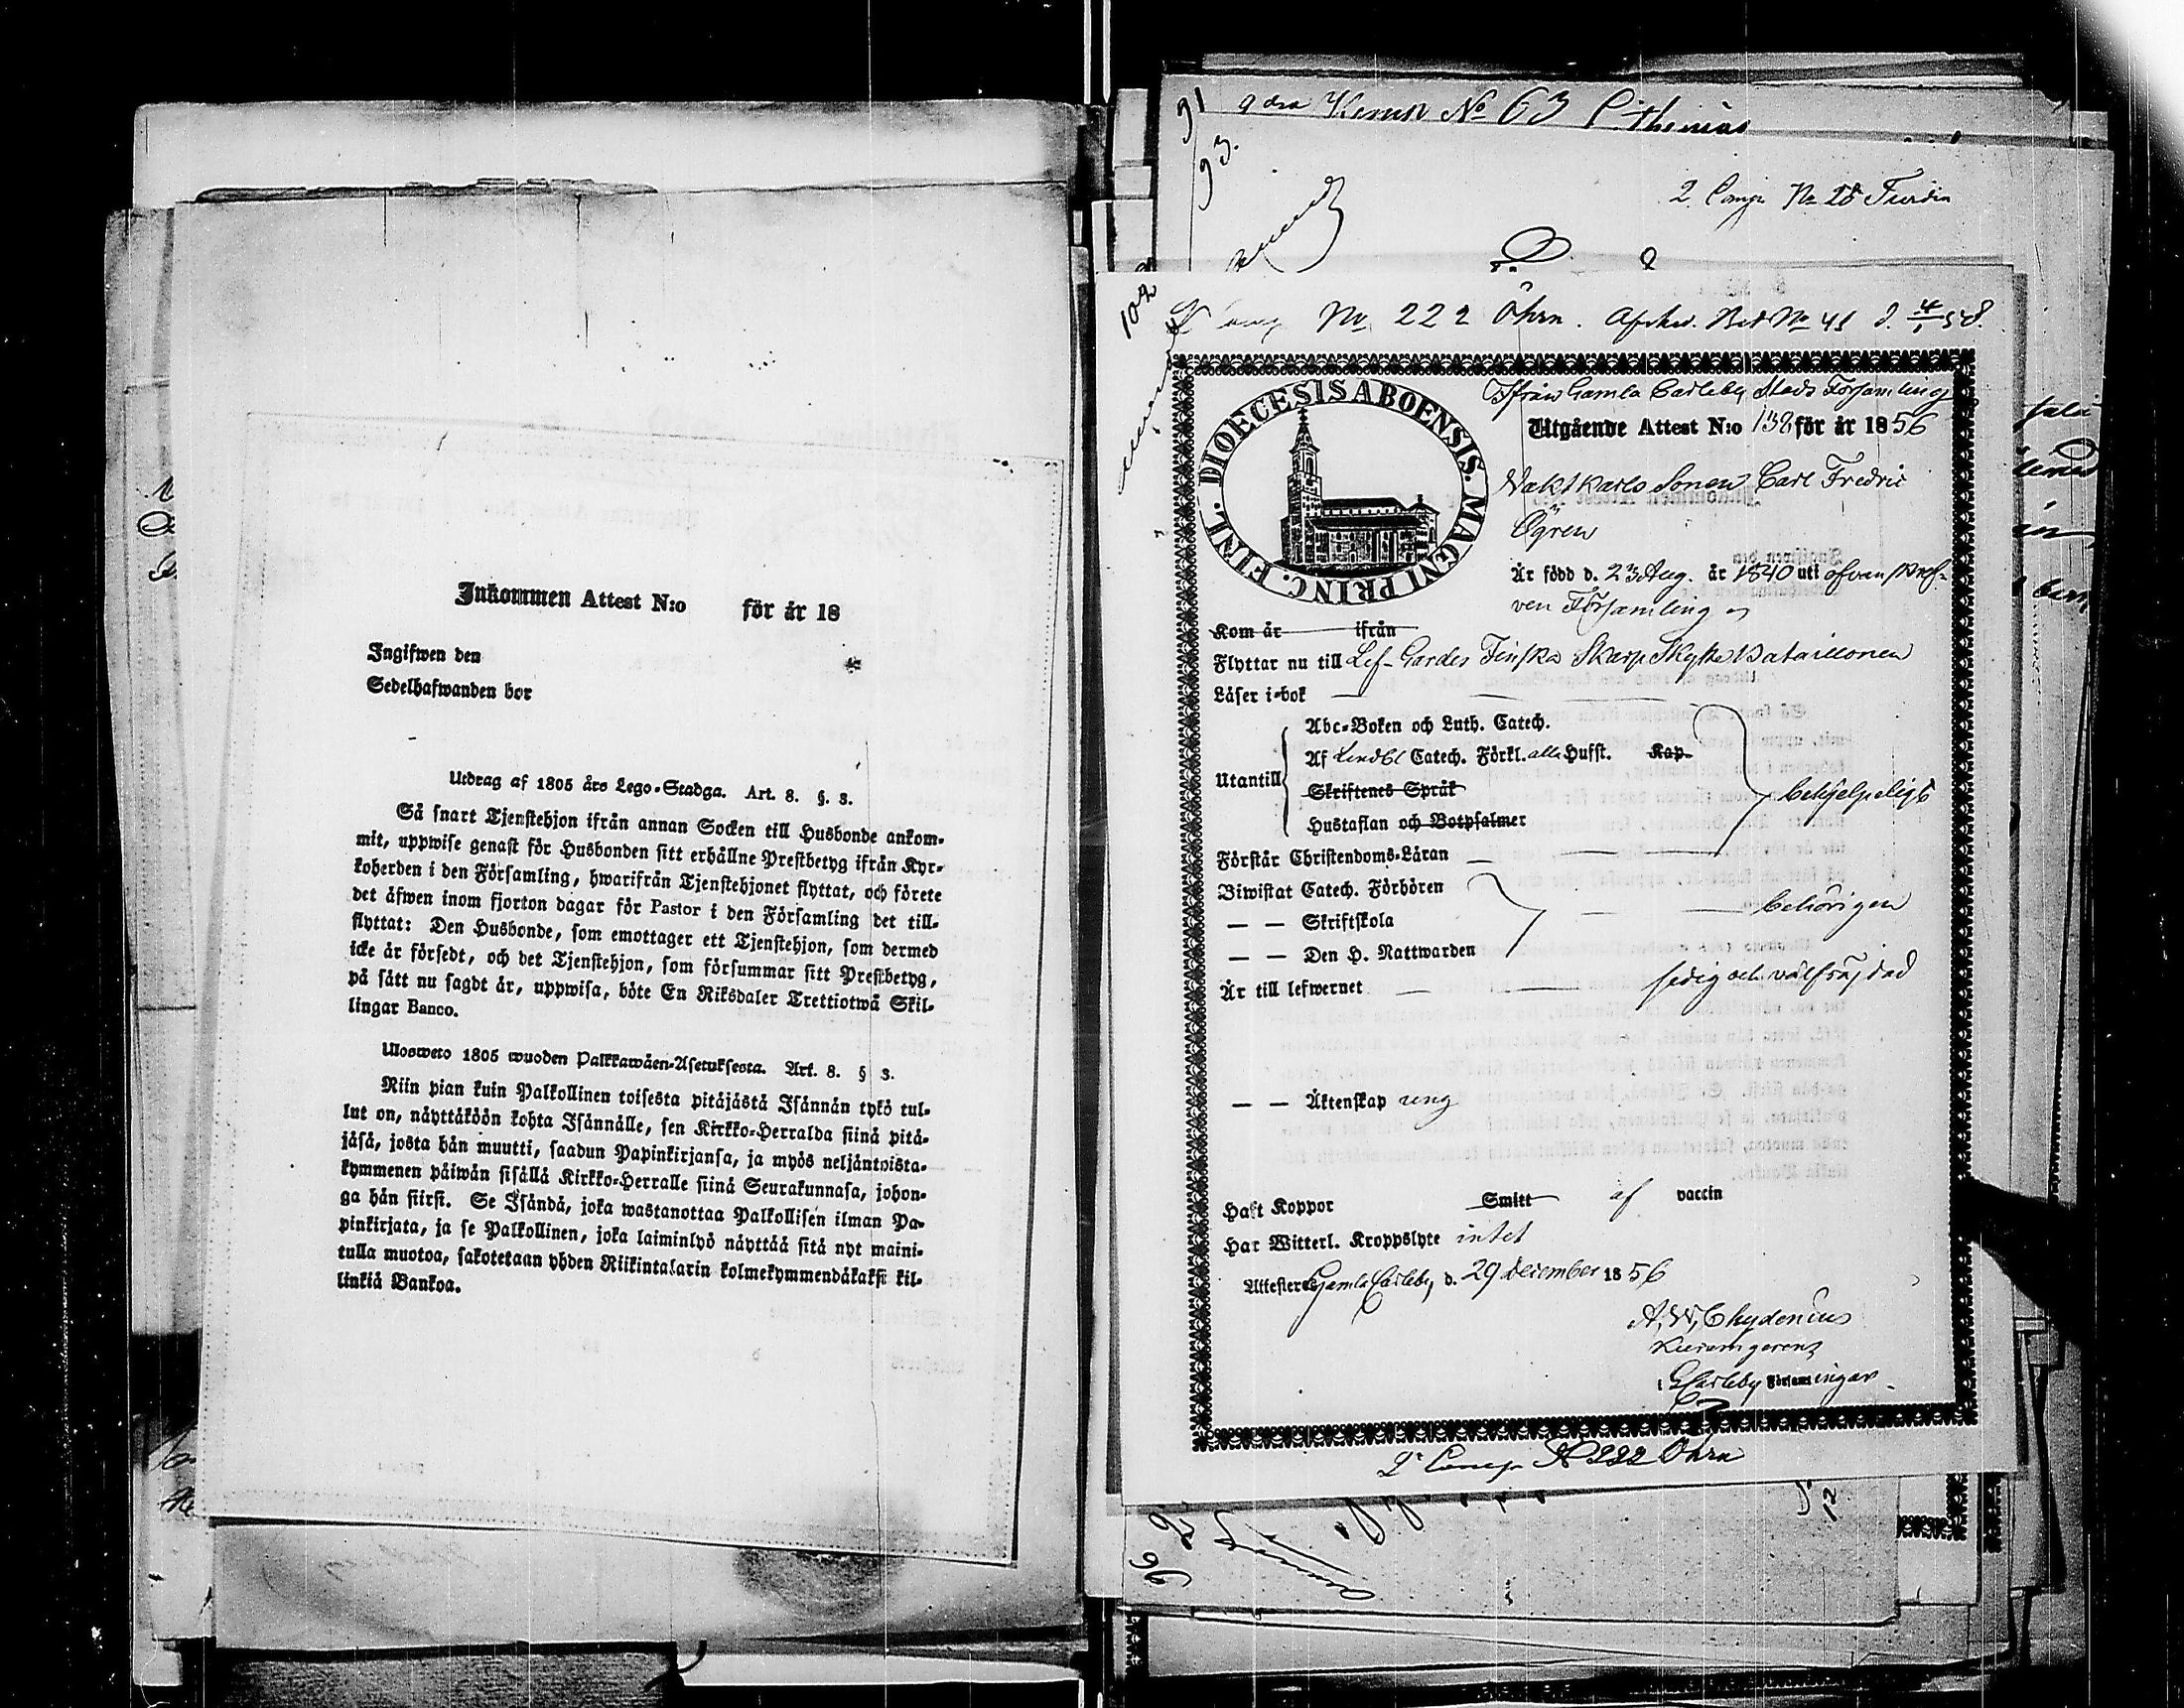 Inkommen Attest N:o för år 18
Ingifwen den
Sedelhafwanden bor
Utdrag af 1805 års Lego-Stadga. Art. 8. §. 3.
Så snart Tjenstehjon ifrån annan Socken till Husbonde ankom-
mit, uppwise genast för Husbonden sitt erhållne Prestbetyg ifrån Kyr-
koherden i den Församling, hwarifrån Tjenstehjonet flyttat, och förete
det äfwen inom fjorton dagar för Pastor i den Församling det till-
flyttat: Den Husbonde, som emottager ett Tjenstehjon, som dermed
icke är försedt, och det Tjenstehjon, som försummar sitt Prestbetyg,
på sätt nu sagdt är, uppwisa, böte En Riksdaler Trettiotwå Skil-
lingar Banco.
Ulosweto 1805 wuoden Palkkawäen-Asetuksesta. Art. 8. § 3.
Niin pian kuin Palkollinen toisesta pitäjästä Isännän tykö tul-
lut on, näyttäköön kohta Isännälle, sen Kirkko-Herralda siinä pitä-
jäsä, josta hän muutti, saadun Papinkirjansa, ja myös neljäntoista-
kymmenen päiwän sisällä Kirkko-Herralle siinä Seurakunnasa, johon-
ga hän siirsi. Se Isändä, joka wastanottaa Palkollisen ilman Pa-
pinkirjata, ja se Palkollinen, joka laiminlyö näyttää sitä nyt maini-
tulla muotoa, sakotetaan yhden Riikintalarin kolmekymmendäkaksi kil-
linkiä Bankoa.
91 No 63
93.
2 Comp No 28
102
No 222 Öhrn. Afsked. Bet No 41 d. 4/1 58.
DIOECESIS ABOENSIS. MAGNI PRINC. FINL.
Ifrån Gamla Carleby Stads Församling
Utgående Attest N:o 138 för år 1856
Vaktkarls Sonen Carl Fredric
Ögren
Är född d. 23 Aug. år 1840 uti ofvanskref-
ven Församling
Kom år ifrån
Flyttar nu till Lif-Gardes Finska Skarp Skytte Bataillonen
Läser i-bok
Abc-Boken och Luth. Catech.
Utantill Af Lindbl Catech. Förkl. alla Hufst. Kap.
Skriftenes Språk
Hustaflan och Botpsalmer
behjelpeligt
Förstår Christendoms-Läran
Biwistat Catech. Förhören
— — Skriftskola behörigen
— — Den H. Nattwarden
Är till lefwernet sedig och välfräjdad
— — Äktenskap ung
Haft Koppor Smitt af vaccin
Har Witterl. Kroppslyte intet
Attesteras Gamla Carleby d. 29 December 1856
A. W. Chydenius
i GCarleby Församlingar.
2 Comp N 222 Öhrn
96